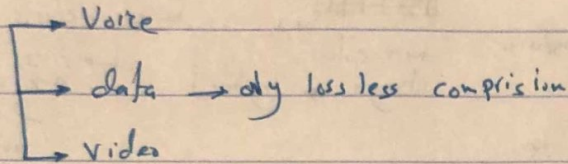 Voice
data → only loss less comprision
Video